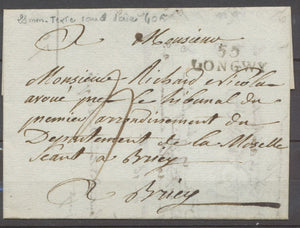 A Monsieur
55
LONGWY
Monsieur Richard Nicolas
avoué près le tribunal du
premier arrondissement du
Département de la Moselle
Séant à Briey
A Briey